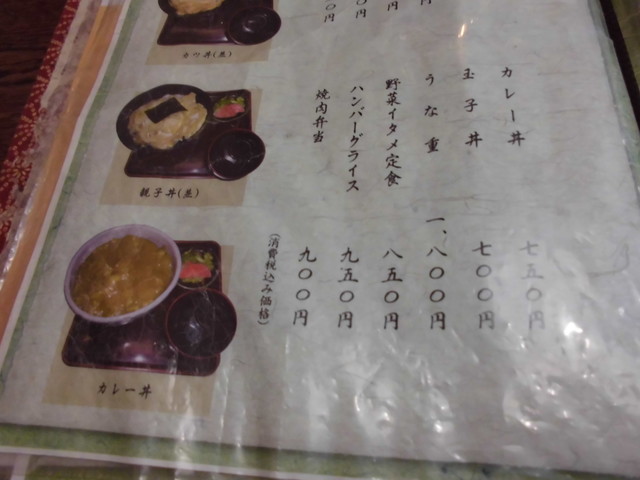 カレー丼
七五〇円
玉子丼
七〇〇円
うな重
一、八〇〇円
野菜イタメ定食
八五〇円
ハンバーグライス
九五〇円
焼肉弁当
九〇〇円
(消費税込み価格)
カツ丼(並)
親子丼(並)
カレー丼